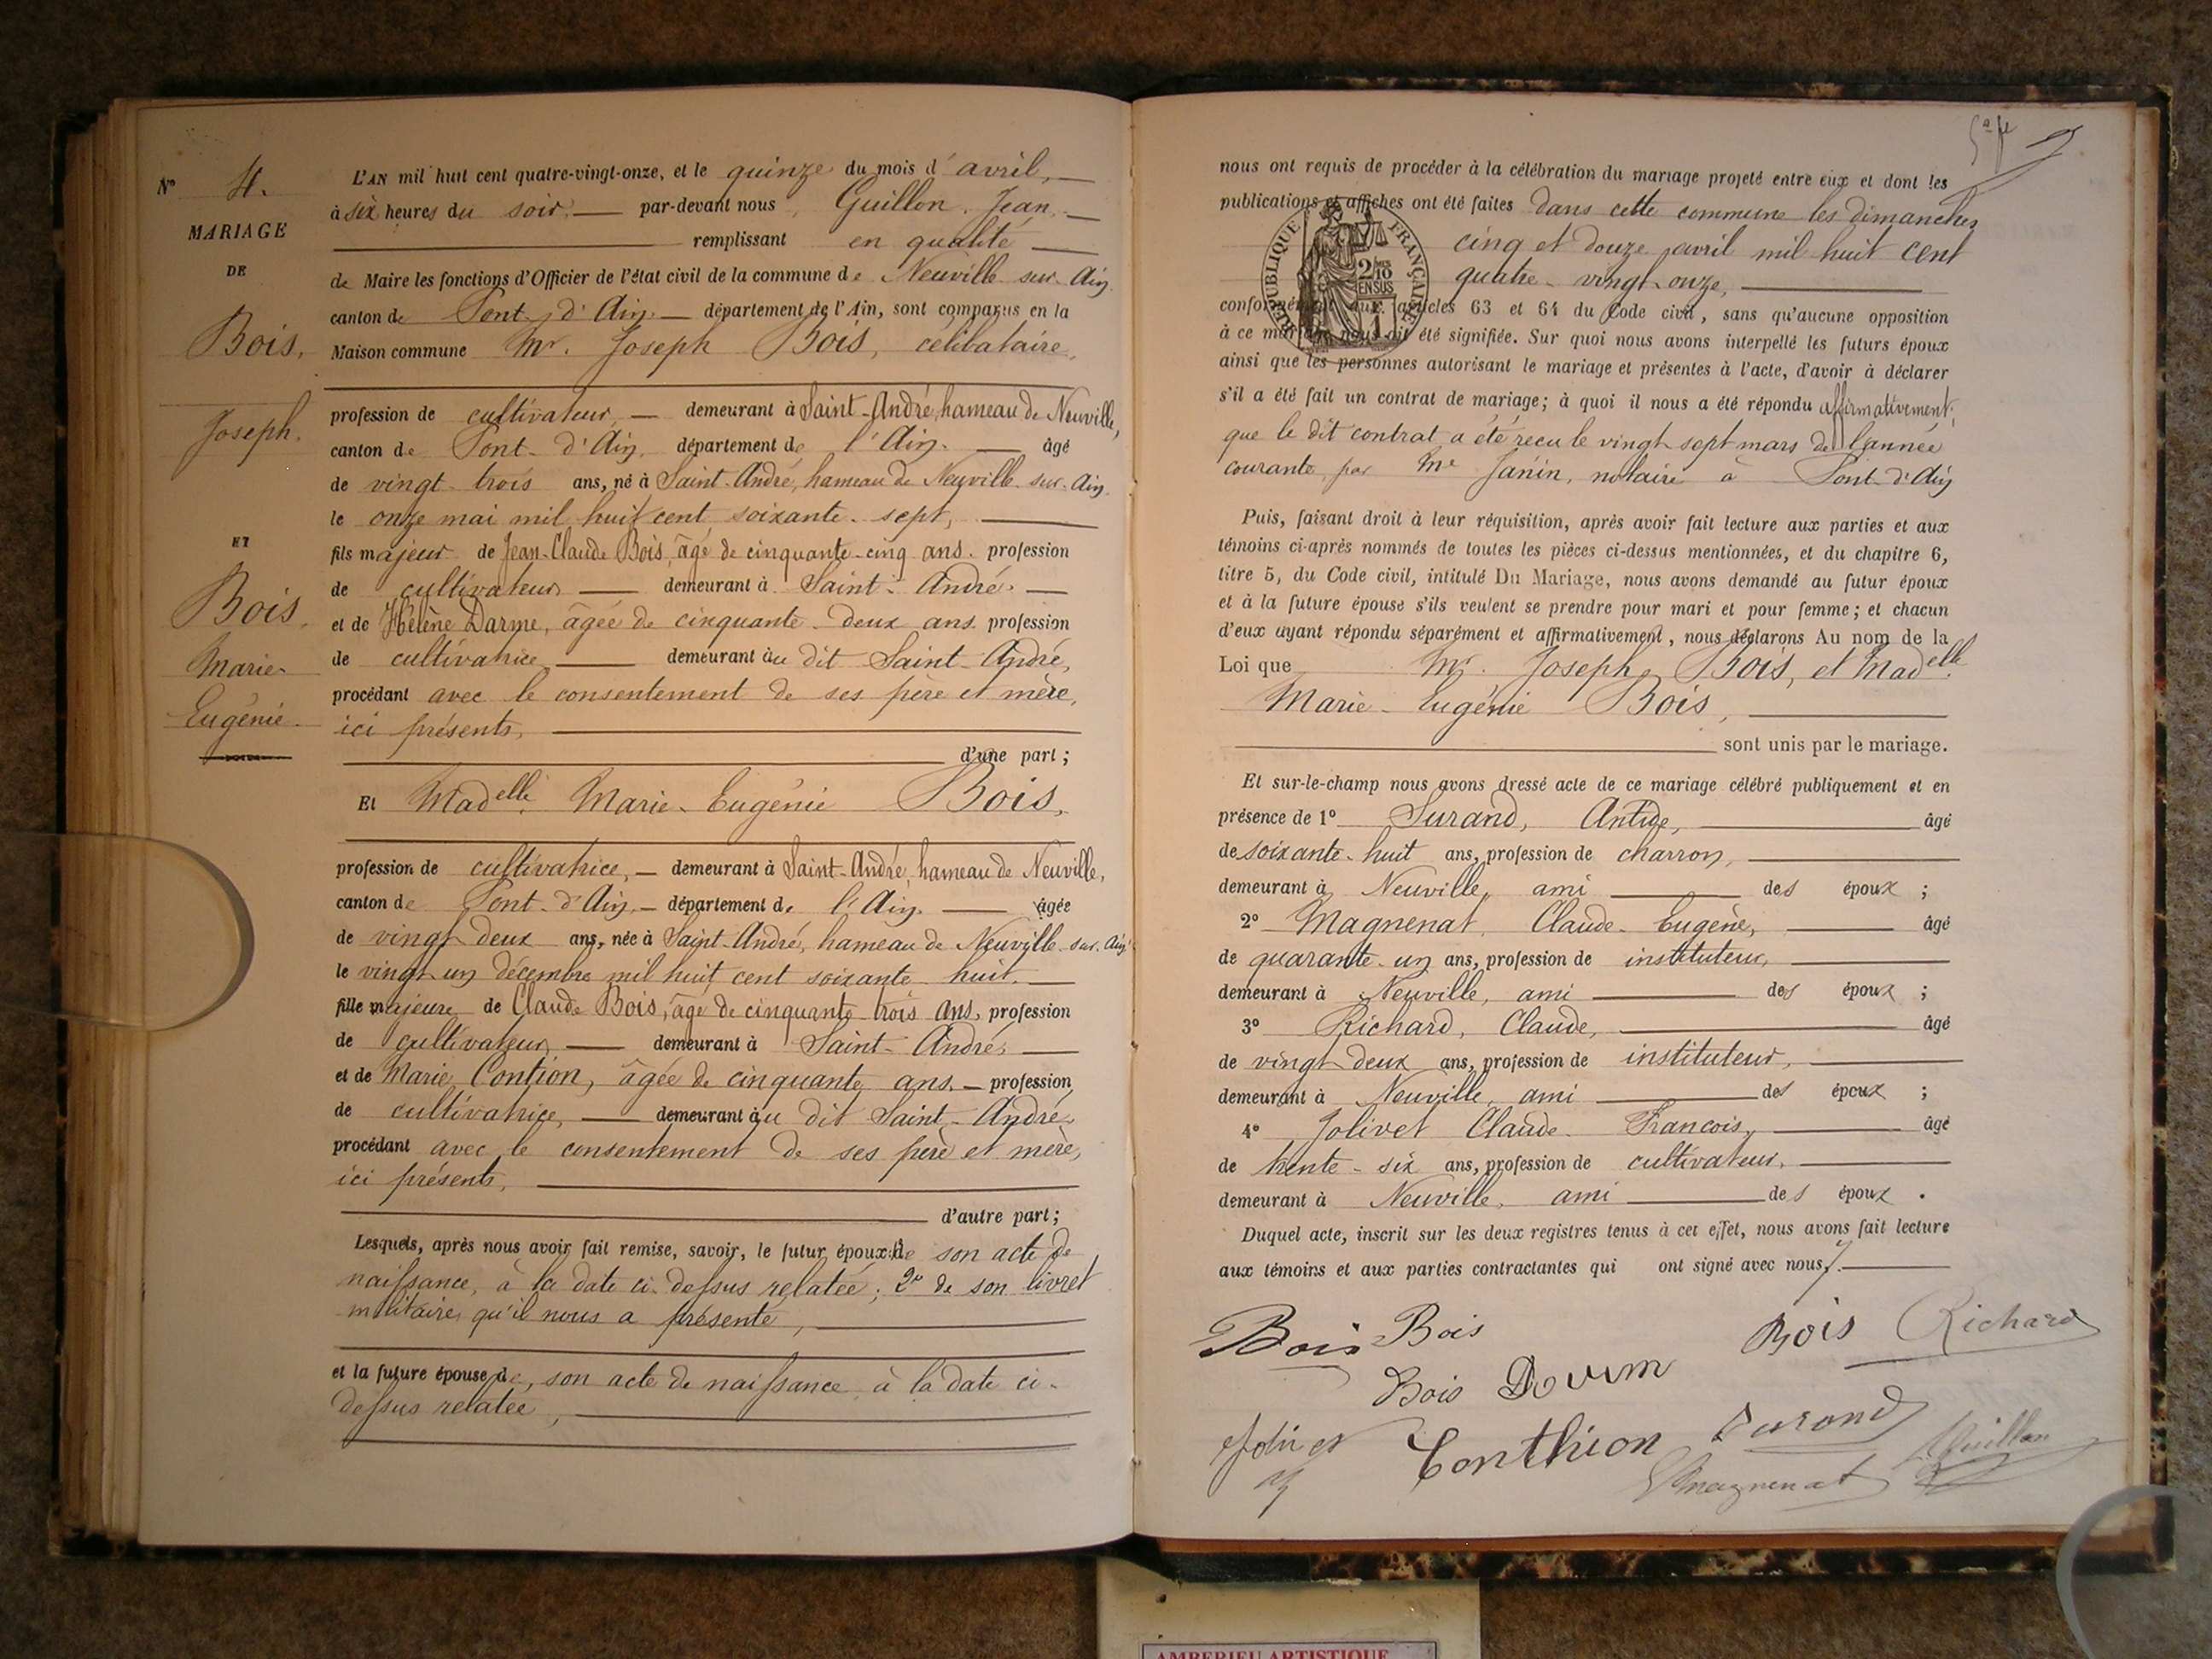 N° 4.
MARIAGE
DE
Bois,
Joseph.
ET
Bois,
Marie-
Eugénie.
L'AN mil huit cent quatre-vingt-onze, et le quinze du mois d'avril,
à six heures du soir, par-devant nous, Guillon, Jean,
remplissant en qualité
de Maire les fonctions d'Officier de l'état civil de la commune de Neuville-sur-Ain
canton de Pont-d'Ain département de l'Ain, sont comparus en la
Maison commune Mr. Joseph Bois, célibataire,
profession de cultivateur, demeurant à Saint-André, hameau de Neuville,
canton de Pont-d'Ain, département de l'Ain, âgé
de vingt-trois ans, né à Saint-André, hameau de Neuville-sur-Ain,
le onze mai mil huit cent soixante-sept,
fils majeur de Jean-Claude Bois, âgé de cinquante-cinq ans, profession
de cultivateur demeurant à Saint-André
et de Hélène Darme, âgée de cinquante-deux ans profession
de cultivatrice, demeurant au dit Saint-André,
procédant avec le consentement de ses père et mère,
ici présents,
d'une part;
Et Madelle Marie-Eugénie Bois,
profession de cultivatrice, demeurant à Saint-André, hameau de Neuville,
canton de Pont-d'Ain, département de l'Ain, âgée
de vingt-deux ans, née à Saint-André, hameau de Neuville-sur-Ain
le vingt-un décembre mil huit cent soixante-huit,
fille majeure de Claude Bois, âgé de cinquante-trois ans, profession
de cultivateur, demeurant à Saint-André,
et de Marie Contion, âgée de cinquante ans, profession
de cultivatrice, demeurant au dit Saint-André,
procédant avec le consentement de ses père et mère,
ici présents,
d'autre part;
Lesquels, après nous avoir fait remise, savoir, le futur époux: de son acte de
naissance, à la date ci-dessus relatée; 2° de son livret
militaire, qu'il nous a présenté,
et la future épouse de, son acte de naissance à la date ci-
dessus relatée,
nous ont requis de procéder à la célébration du mariage projeté entre eux et dont les
publications et affiches ont été faites dans cette commune les dimanches
cinq et douze avril mil huit cent
quatre-vingt-onze,
RÉPUBLIQUE FRANÇAISE
2/10
EN SUS
conformément aux articles 63 et 64 du Code civil, sans qu'aucune opposition
à ce mariage nous ait été signifiée. Sur quoi nous avons interpellé les futurs époux
ainsi que les personnes autorisant le mariage et présentes à l'acte, d'avoir à déclarer
s'il a été fait un contrat de mariage; à quoi il nous a été répondu affirmativement;
que le dit contrat a été reçu le vingt-sept mars de l'année
courante, par Me Janin, notaire à Pont-d'Ain
Puis, faisant droit à leur réquisition, après avoir fait lecture aux parties et aux
témoins ci-après nommés de toutes les pièces ci-dessus mentionnées, et du chapitre 6,
titre 5, du Code civil, intitulé Du Mariage, nous avons demandé au futur époux
et à la future épouse s'ils veulent se prendre pour mari et pour femme; et chacun
d'eux ayant répondu séparément et affirmativement, nous déclarons Au nom de la
Loi que Mr. Joseph Bois, et Madelle
Marie-Eugénie Bois,
sont unis par le mariage.
Et sur-le-champ nous avons dressé acte de ce mariage célébré publiquement et en
présence de 1° Surand, Antide, âgé
de soixante-huit ans, profession de charron,
demeurant à Neuville, ami des époux;
2° Magnenat, Claude-Eugène, âgé
de quarante-un ans, profession de instituteur,
demeurant à Neuville, ami des époux;
3° Richard, Claude, âgé
de vingt-deux ans, profession de instituteur,
demeurant à Neuville, ami des époux;
4° Jolivet Claude-François, âgé
de trente-six ans, profession de cultivateur,
demeurant à Neuville, ami des époux.
Duquel acte, inscrit sur les deux registres tenus à cet effet, nous avons fait lecture
aux témoins et aux parties contractantes qui ont signé avec nous.
Bois Bois Bois Richard
Bois
Conthion Surand
Magnenat Guillon
AMBERIEU ARTISTIQUE